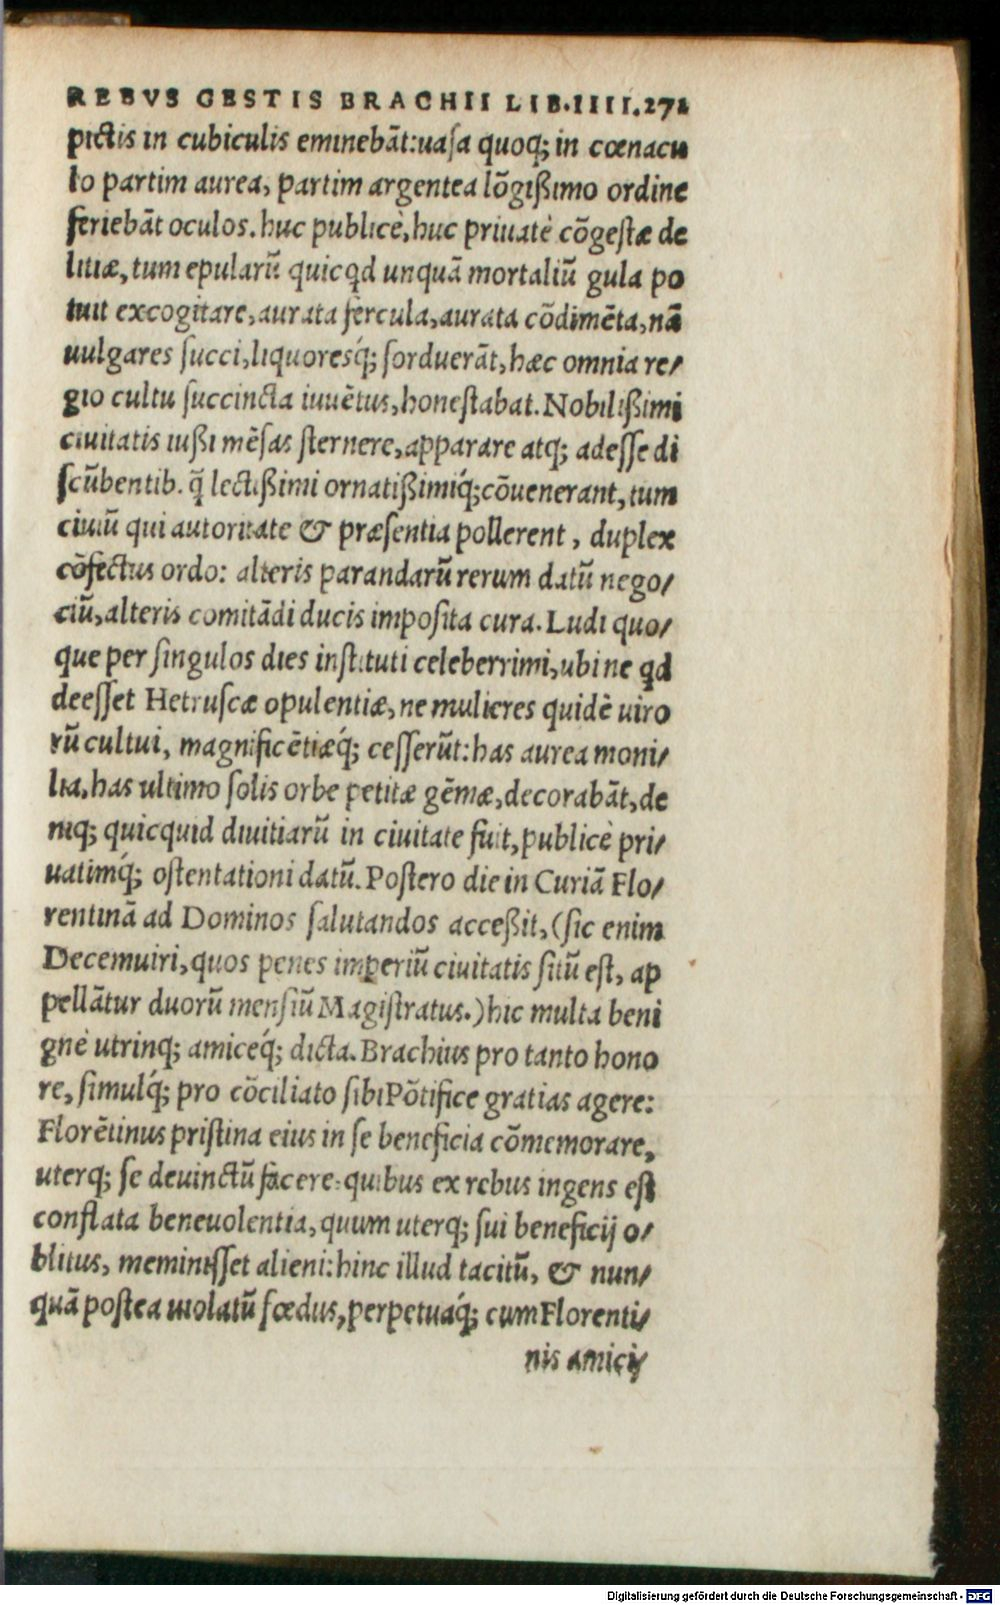 REBVS GESTIS BRACHII LIB.IIII.271
pictis in cubiculis eminebāt:uasa quoq; in cœnacu
lo partim aurea, partim argentea lōgißimo ordine
feriebāt oculos. huc publicè, huc priuatè cōgestæ de
litiæ, tum epularū quicqd unquā mortaliū gula po
tuit excogitare, aurata fercula, aurata cōdimēta, nā
uulgares succi, liquoresq́; sorduerāt, hæc omnia re/
gio cultu succincta iuuētus, honestabat. Nobilißimi
ciuitatis iußi mēsas sternere, apparare atq; adesse di
scūbentib. q̄ lectißimi ornatißimiq́; cōuenerant, tum
ciuiū qui autoritate & præsentia pollerent, duplex
cōfectus ordo: alteris parandarū rerum datū nego/
ciū, alteris comitādi ducis imposita cura. Ludi quo/
que per singulos dies instituti celeberrimi, ubi ne qd
deesset Hetruscæ opulentiæ, ne mulieres quidē uiro
rū cultui, magnificētiæq́; cesserūt: has aurea moni/
lia, has ultimo solis orbe petitæ gēmæ, decorabāt, de
niq; quicquid diuitiarū in ciuitate fuit, publicè pri/
uatimq́; ostentationi datū. Postero die in Curiā Flo/
rentinā ad Dominos salutandos acceßit, (sic enim
Decemuiri, quos penes imperiū ciuitatis sitū est, ap
pellātur duorū mensiū Magistratus.) hic multa beni
gnè utrinq; amiceq́; dicta. Brachius pro tanto hono
re, simulq́; pro cōciliato sibi Pōtifice gratias agere:
Florētinus pristina eius in se beneficia cōmemorare,
uterq; se deuinctū facere: quibus ex rebus ingens est
conflata beneuolentia, quum uterq; sui beneficij o/
blitus, meminisset alieni: hinc illud tacitū, & nun/
quā postea uiolatū fœdus, perpetuaq́; cum Florenti/
nis amici/
Digitalisierung gefördert durch die Deutsche Forschungsgemeinschaft - DFG